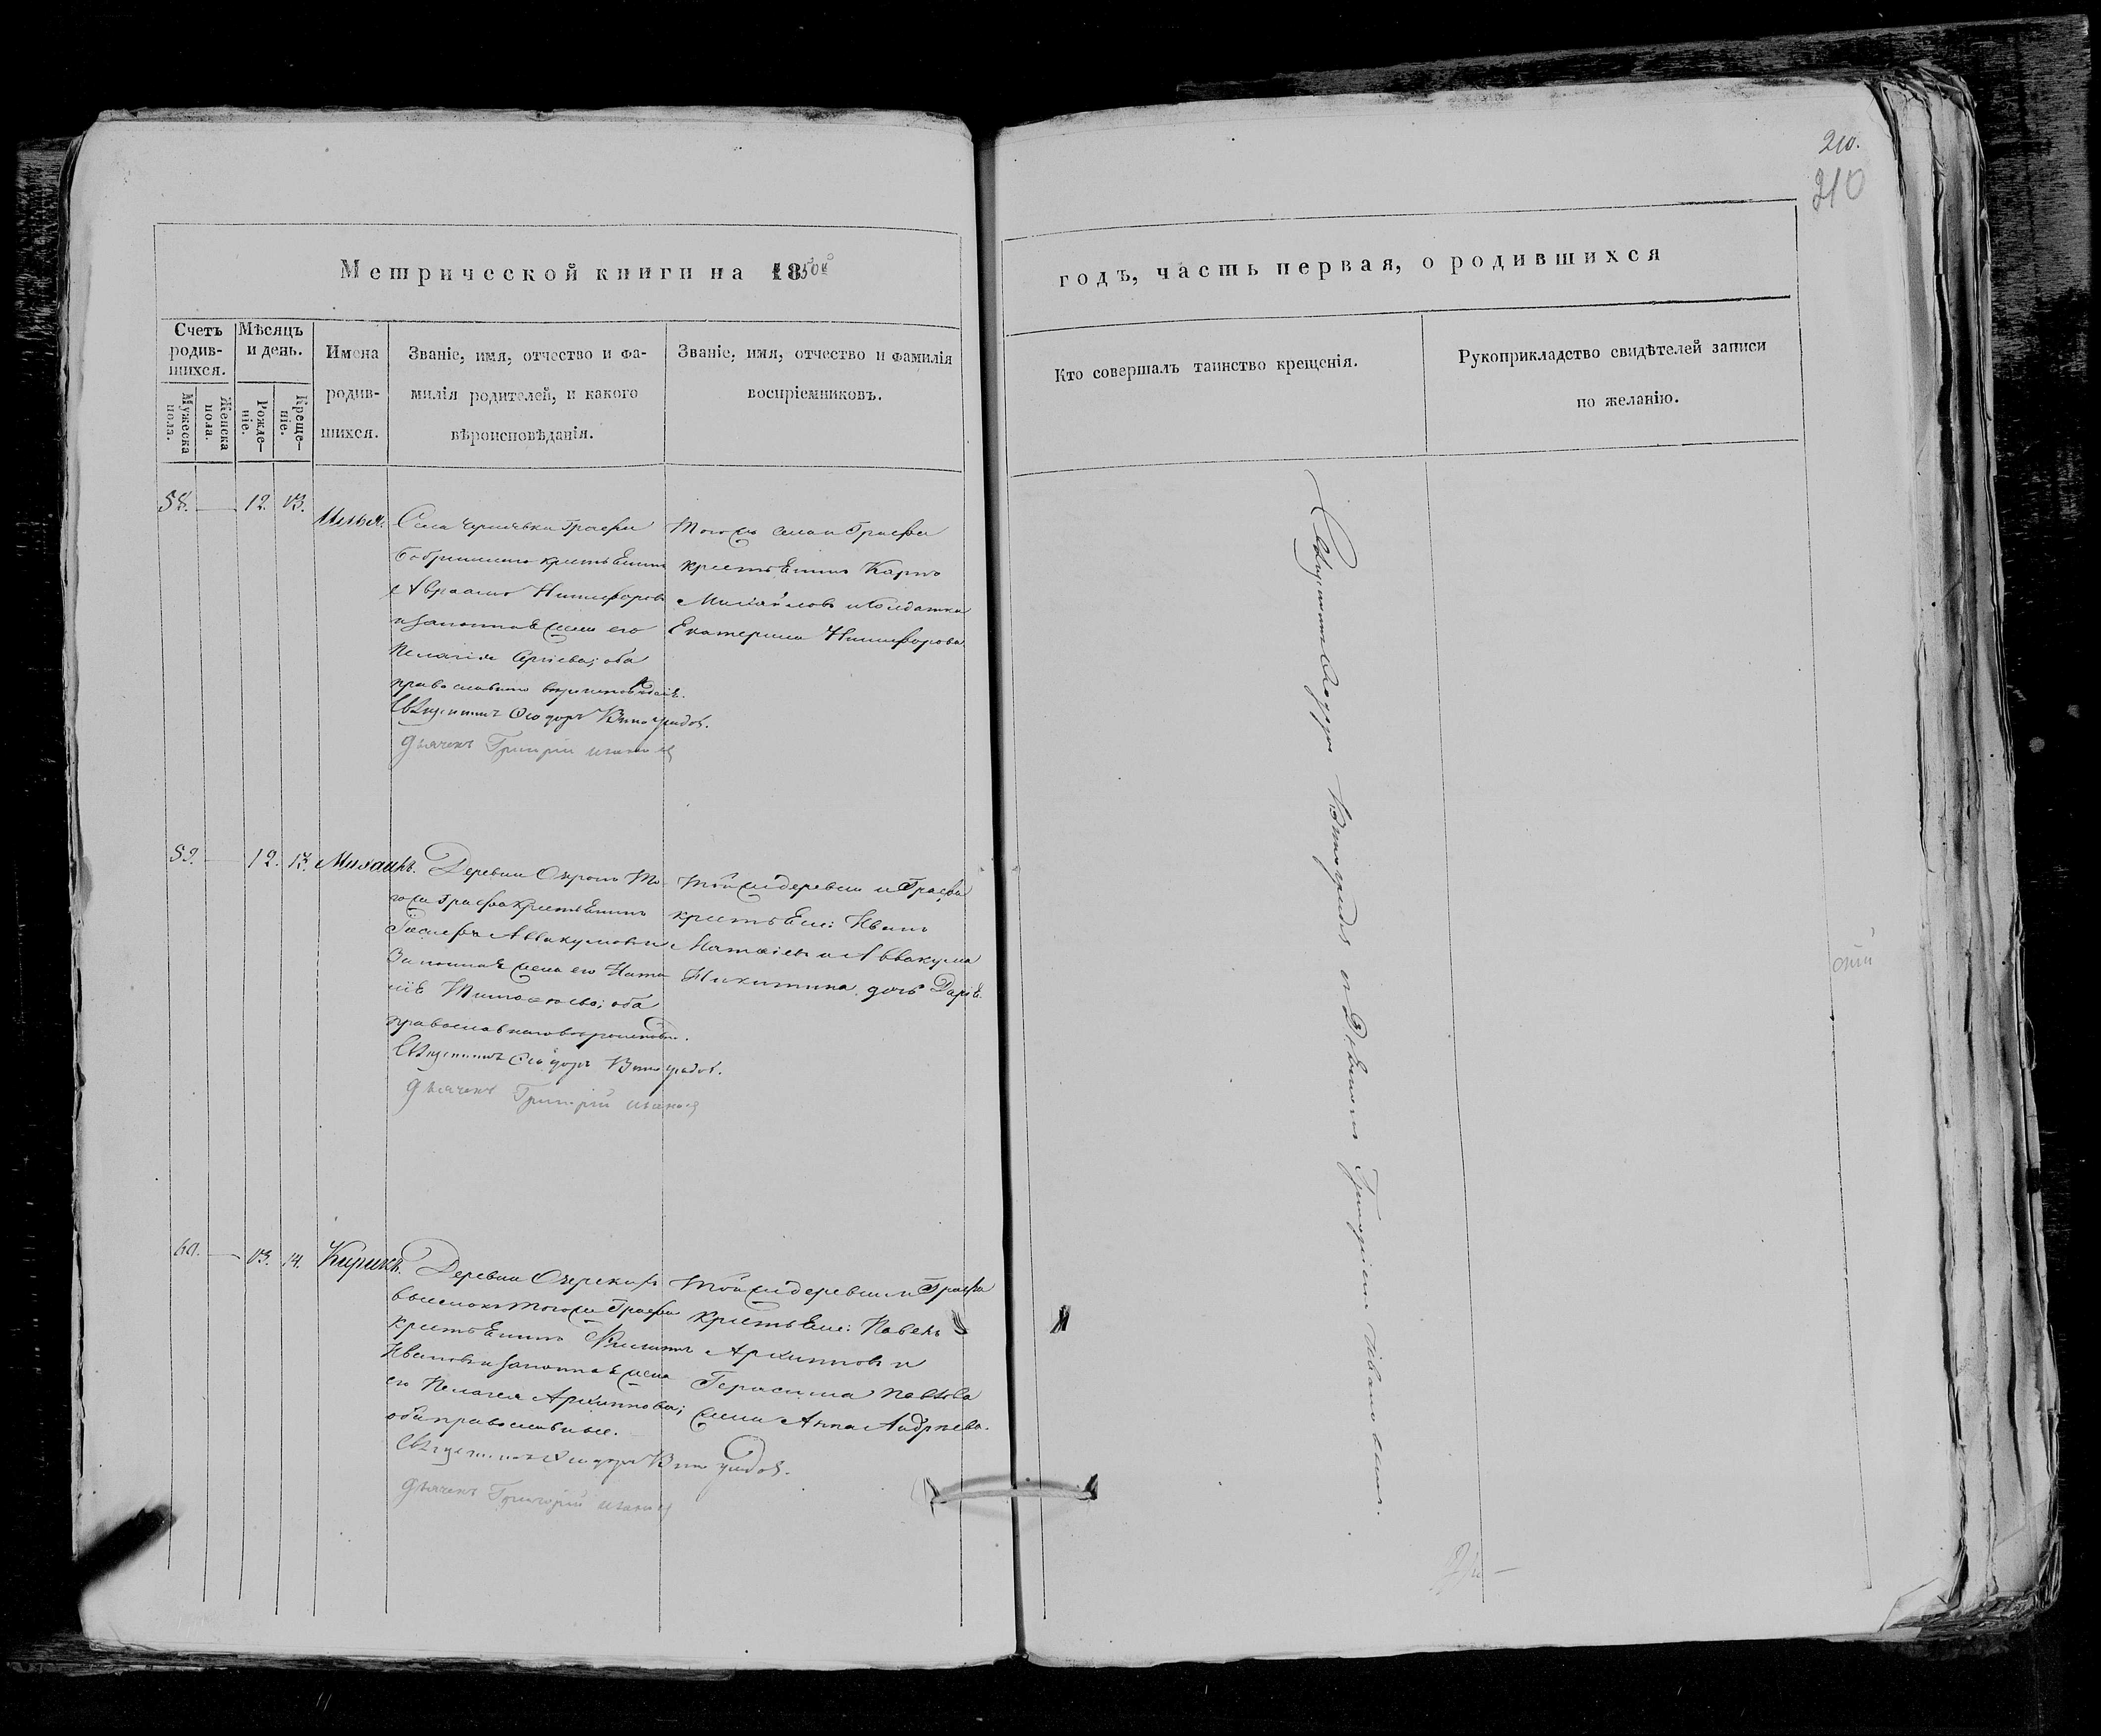 210.
210
Метрической книги на 1850й
годъ, часть первая, о родившихся
Счетъ родив-
шихся.
Мужеска пола.
Женска пола.
Мѣсяцъ и день.
Рожде-
ніе.
Креще-
ніе.
Имена
родив-
шихся.
Званіе, имя, отчество и фа-
милія родителей, и какого
вѣроисповѣданія.
Званіе, имя, отчество и фамилія
воспріемниковъ.
Кто совершалъ таинство крещенія.
Рукоприкладство свидѣтелей записи
по желанію.
58. 12. 13. Илья.
Села Графа
Бобринскаго крестьянинъ
Авраамъ Никифоровъ
и законная жена его
Пелагія Сергіева; оба
православнаго вѣроисповѣданія.
Священникъ Ѳеодоръ Виноградов.
Дьячекъ Григорій Иванов
Тогожъ села и Графа
крестьянинъ Карпъ
Михайловъ и солдатка
Екатерина Никифорова
59. 12. 13. Михаилъ.
Деревни То-
гожъ Графа крестьянинъ
Іосифъ Аввакумовъ и
законная жена его Ната-
лія Тимоѳеева; оба
православнаго вѣроисповѣд.
Священникъ Ѳеодоръ Виноградов.
Дьячекъ Григорій Иванов
Тойжъ деревни и Графа
крестьяне: Иванъ
Матвіевъ и Аввакума
Никитина дочь Дарія.
60. 13. 14. Кирикъ.
Деревни Озерскихъ
выселокъ тогожъ Графа
крестьянинъ Филиппъ
Ивановъ и законная жена
его Пелагея Архиппова;
оба православные.
Священникъ Ѳеодоръ Виноградов.
Дьячекъ Григорій Иванов
Тойжъ деревни и Графа
крестьяне: Павелъ
Архипповъ и
Герасима Павлова
жена Анна Андреева.
Священникъ Ѳеодоръ Виноградовъ съ Дьячкомъ Григоріемъ Ивановымъ.